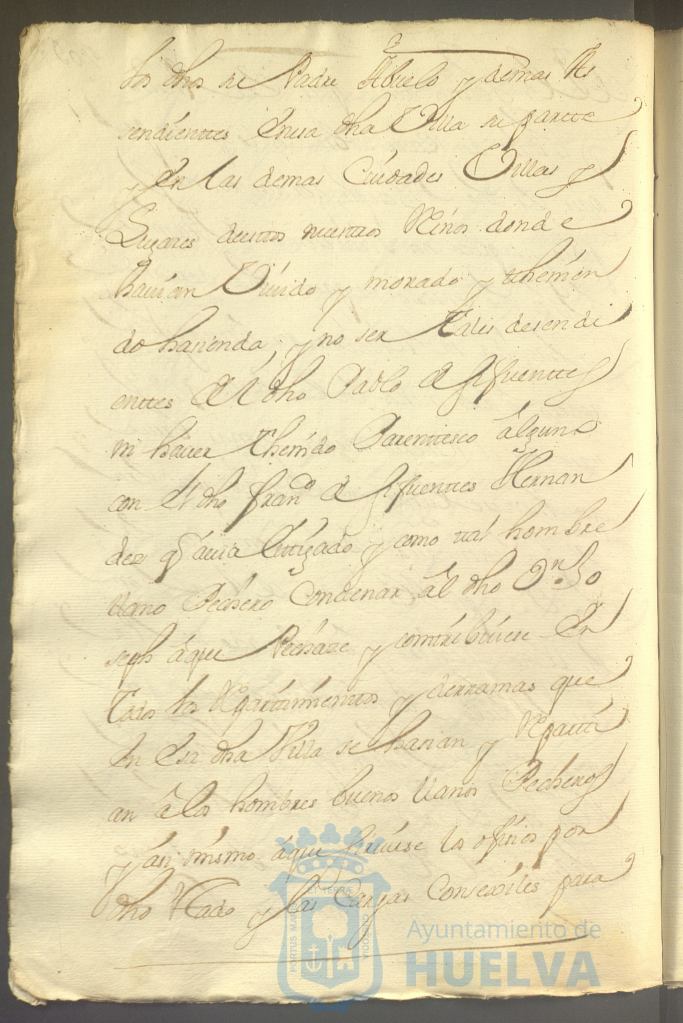 los dhos su Padre Abuelo y demas As
sendientes En esa dha Villa su partte
y En las demas Ciudades Villas y
Lugares destos nuestros Reinos donde
havian Vivido y morado y thenien
do hasienda, y no ser tales desendi
enttes del dho Pablo de Sifuenttes
ni haver thenido Parentesco alguno
con el dho Franco de Sifuenttes Hernan
dez q havia Litigado y como tal hombre
llano Pechero Condenar al dho Dn Jo
seph a que Pechase y contribuiese En
todos los Repartimientos y derramas que
En Esa dha Villa se hacian y Reparti
an a los hombres buenos llanos Pecheros
y asi mismo a que sirviese los ofisios por
dho estado y las Cargas Consexiles para
Ayuntamiento de
HUELVA
PORTUS MARIS
CUSTODIA